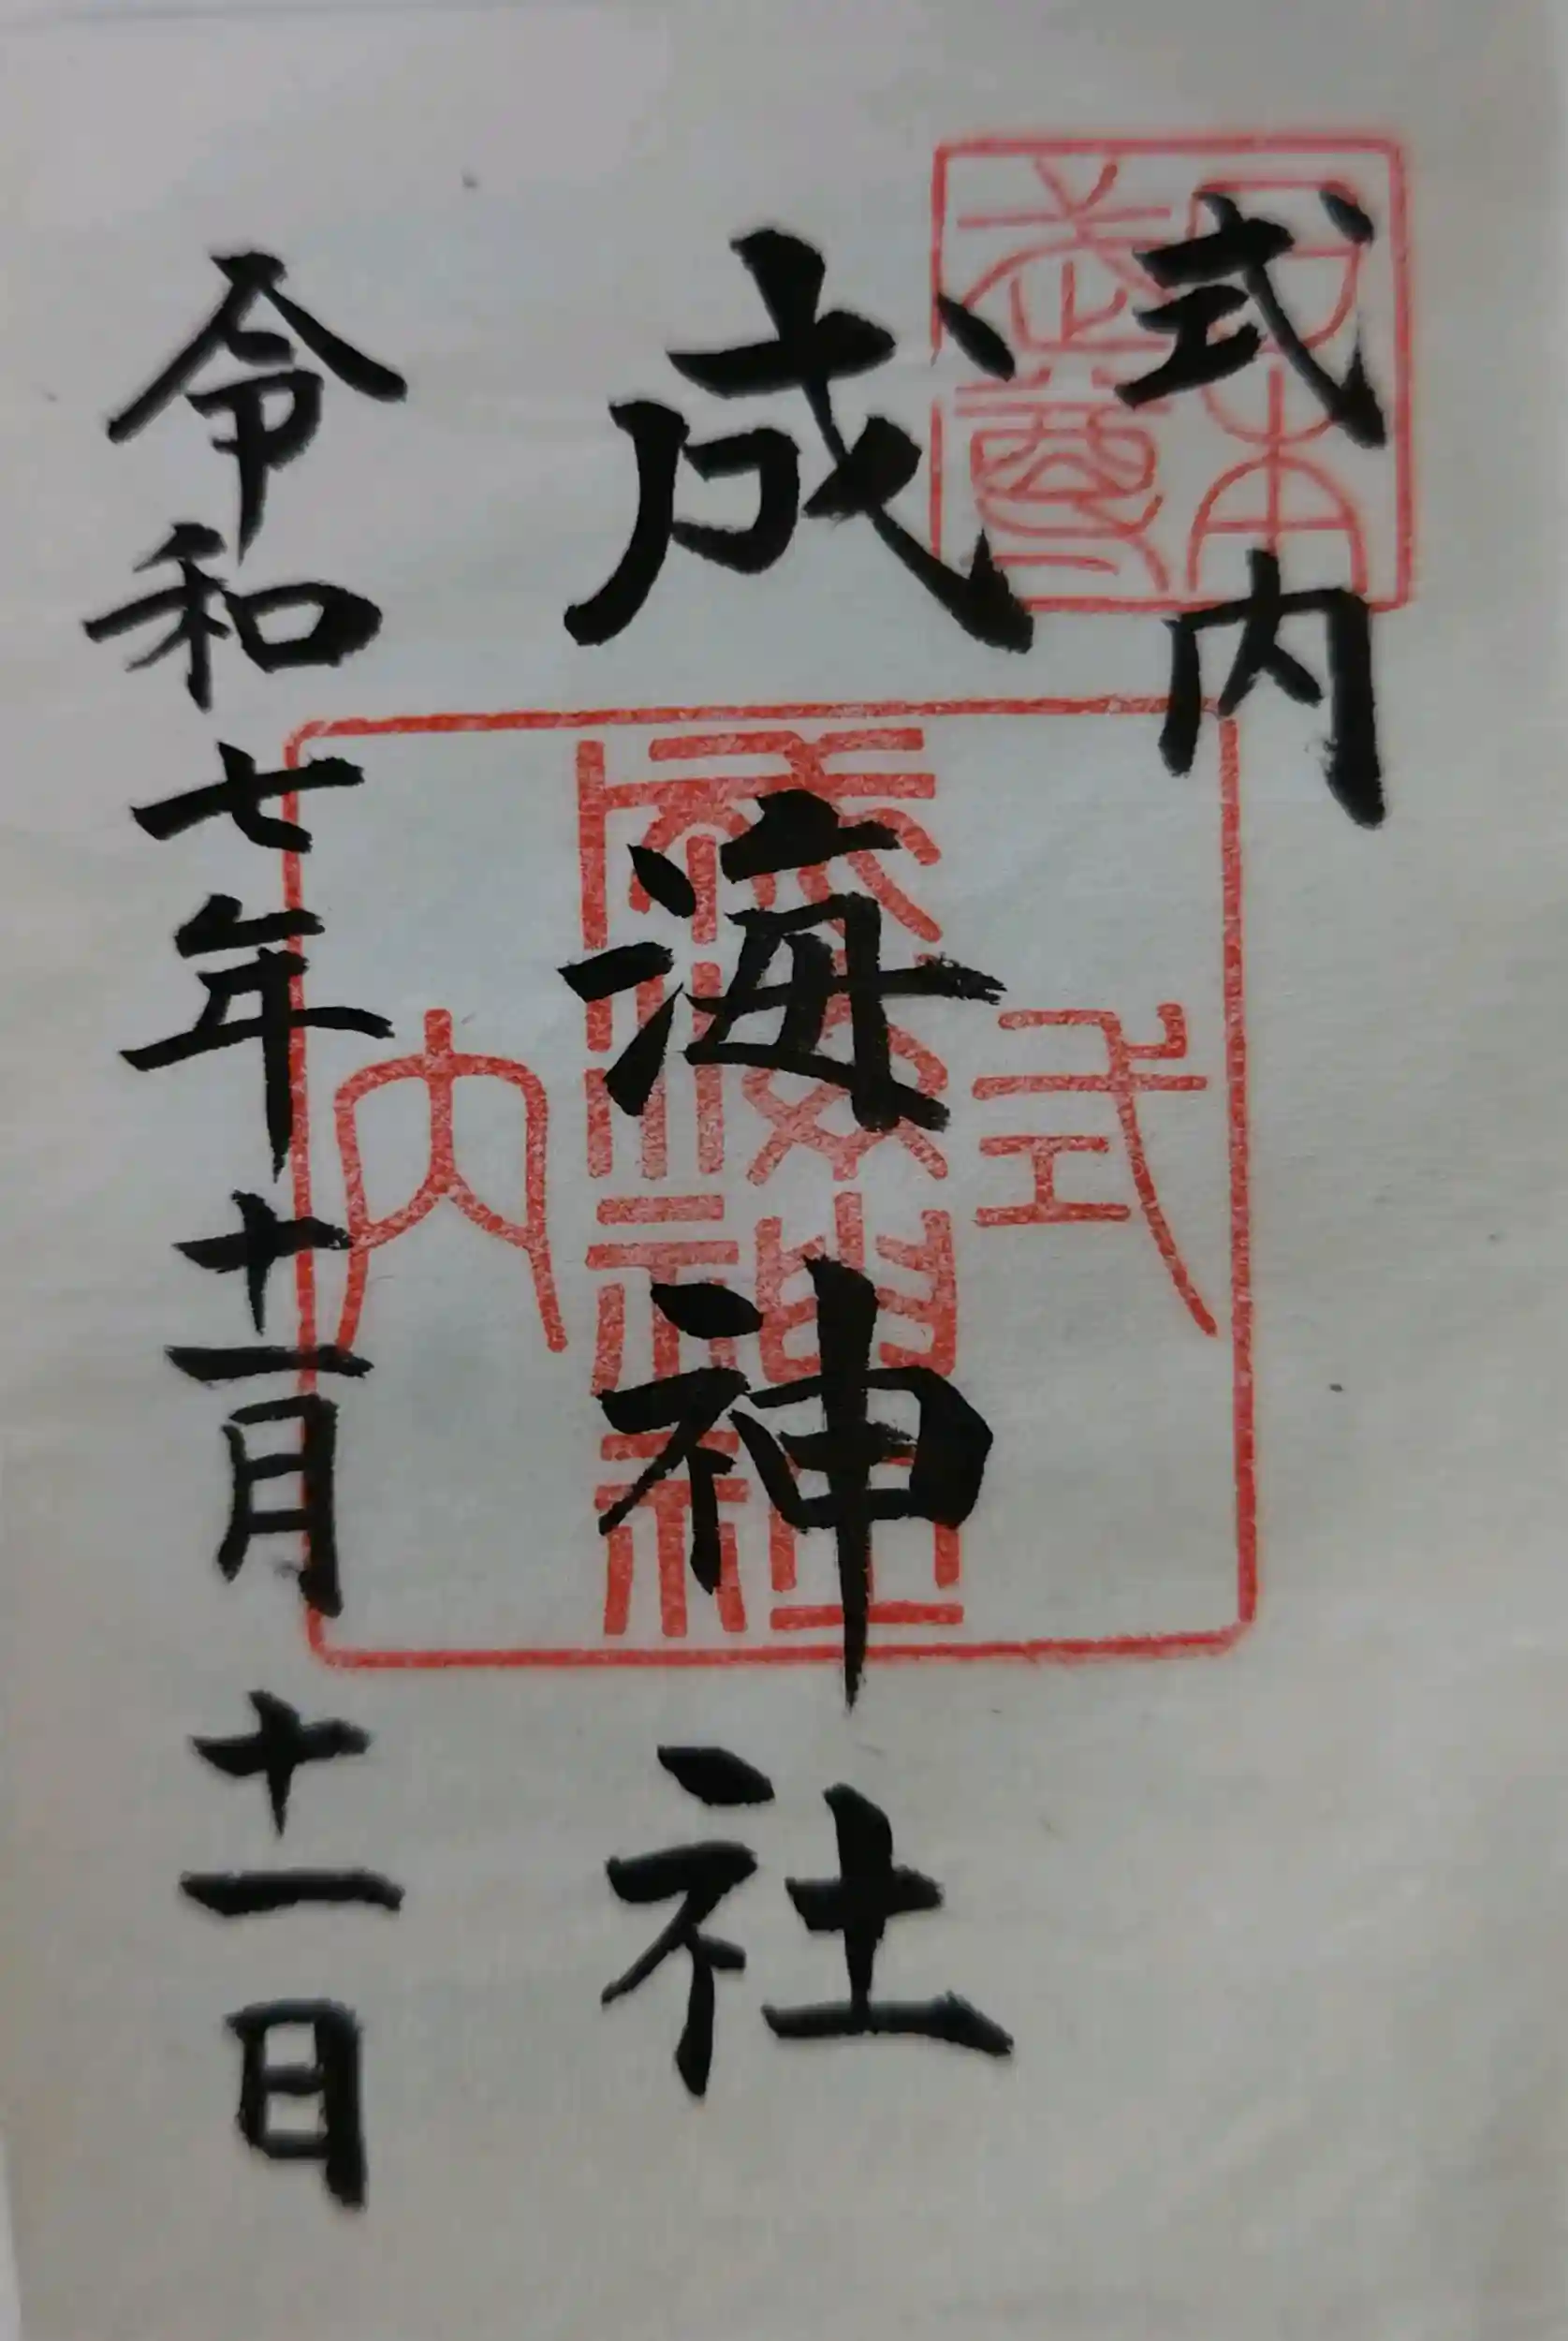 式内
成海神社
令和七年十一月十一日
日本武尊
式
成海神社
内